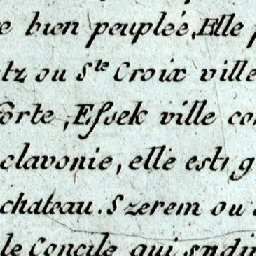 bien peuplée, Elle
ou Ste Croix ville
forte, Essek ville
clavonie, elle est
chateau. Szerem ou
le Concile qui